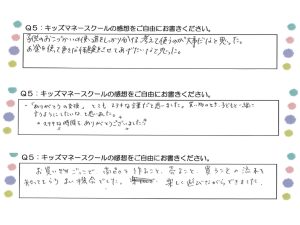 Q5：キッズマネースクールの感想をご自由にお書きください。
子供のおこづかいの使い道をしっかり考えて使うのが大事だなと思った。
お金を使って色々な体験をさせてあげたいなって思った。
Q5：キッズマネースクールの感想をご自由にお書きください。
・「ありがとうの気持」とてもステキな言葉だと思いました。買い物のとき、子どもと一緒に
するようにしたいな、と思いました。
ステキな時間を、ありがとうございました
Q5：キッズマネースクールの感想をご自由にお書きください。
お買い物ごっこで、商品を作ること、売ること、買うことの流れを
知ってもらう良い機会でした。楽しく遊びながらできました。